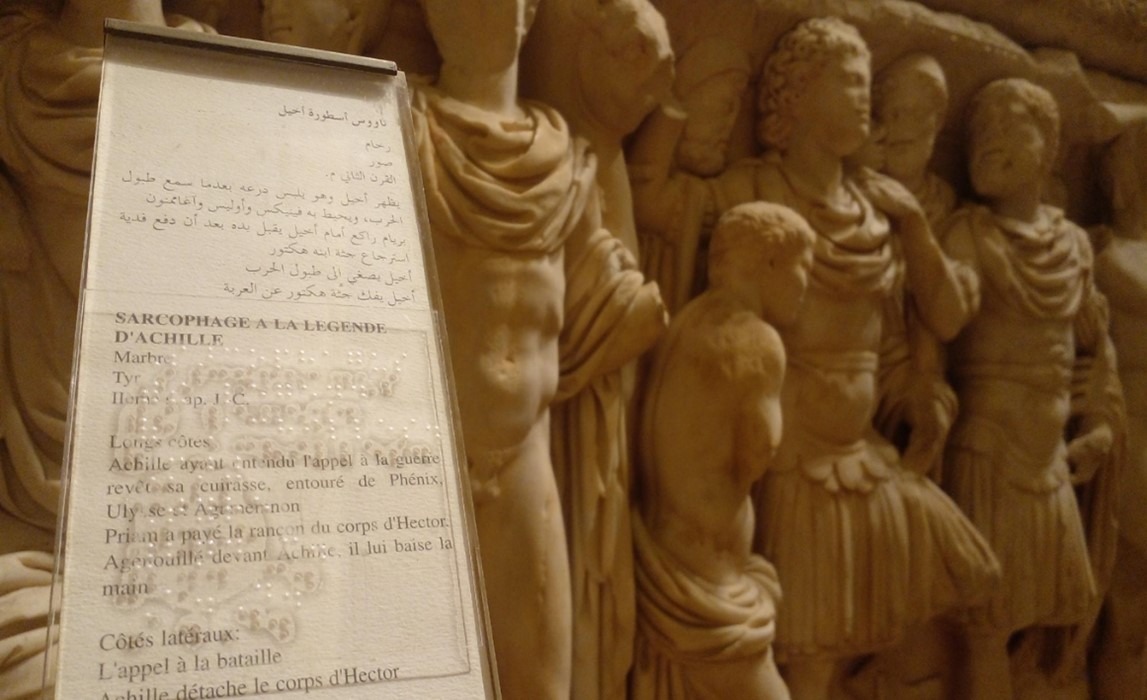 ناووس اسطورة أخيل
رخام
صور
القرن الثاني م.
يظهر أخيل وهو يلبس درعه بعدما سمع طبول
الحرب، ويحيط به فينيكس وأوليس وأغاممنون
بريام راكع أمام أخيل يقبل يده بعد أن دفع فدية
استرجاع جثة ابنه هكتور
أخيل يصغي إلى طبول الحرب
أخيل يفك جثة هكتور عن العربة
SARCOPHAGE A LA LEGENDE
D'ACHILLE
Marbre
Tyr
ap. J. C.
Longs côtés
Achille ayant entendu l'appel à la guerre
revêt sa cuirasse, entouré de Phénix,
Ulysse et Agamemnon
Priam a payé la rançon du corps d'Hector.
Agenouillé devant Achille, il lui baise la
main
Côtés latéraux:
L'appel à la bataille
Achille détache le corps d'Hector